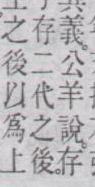 其義。公羊說。存
于存二代之後。
之後以爲上